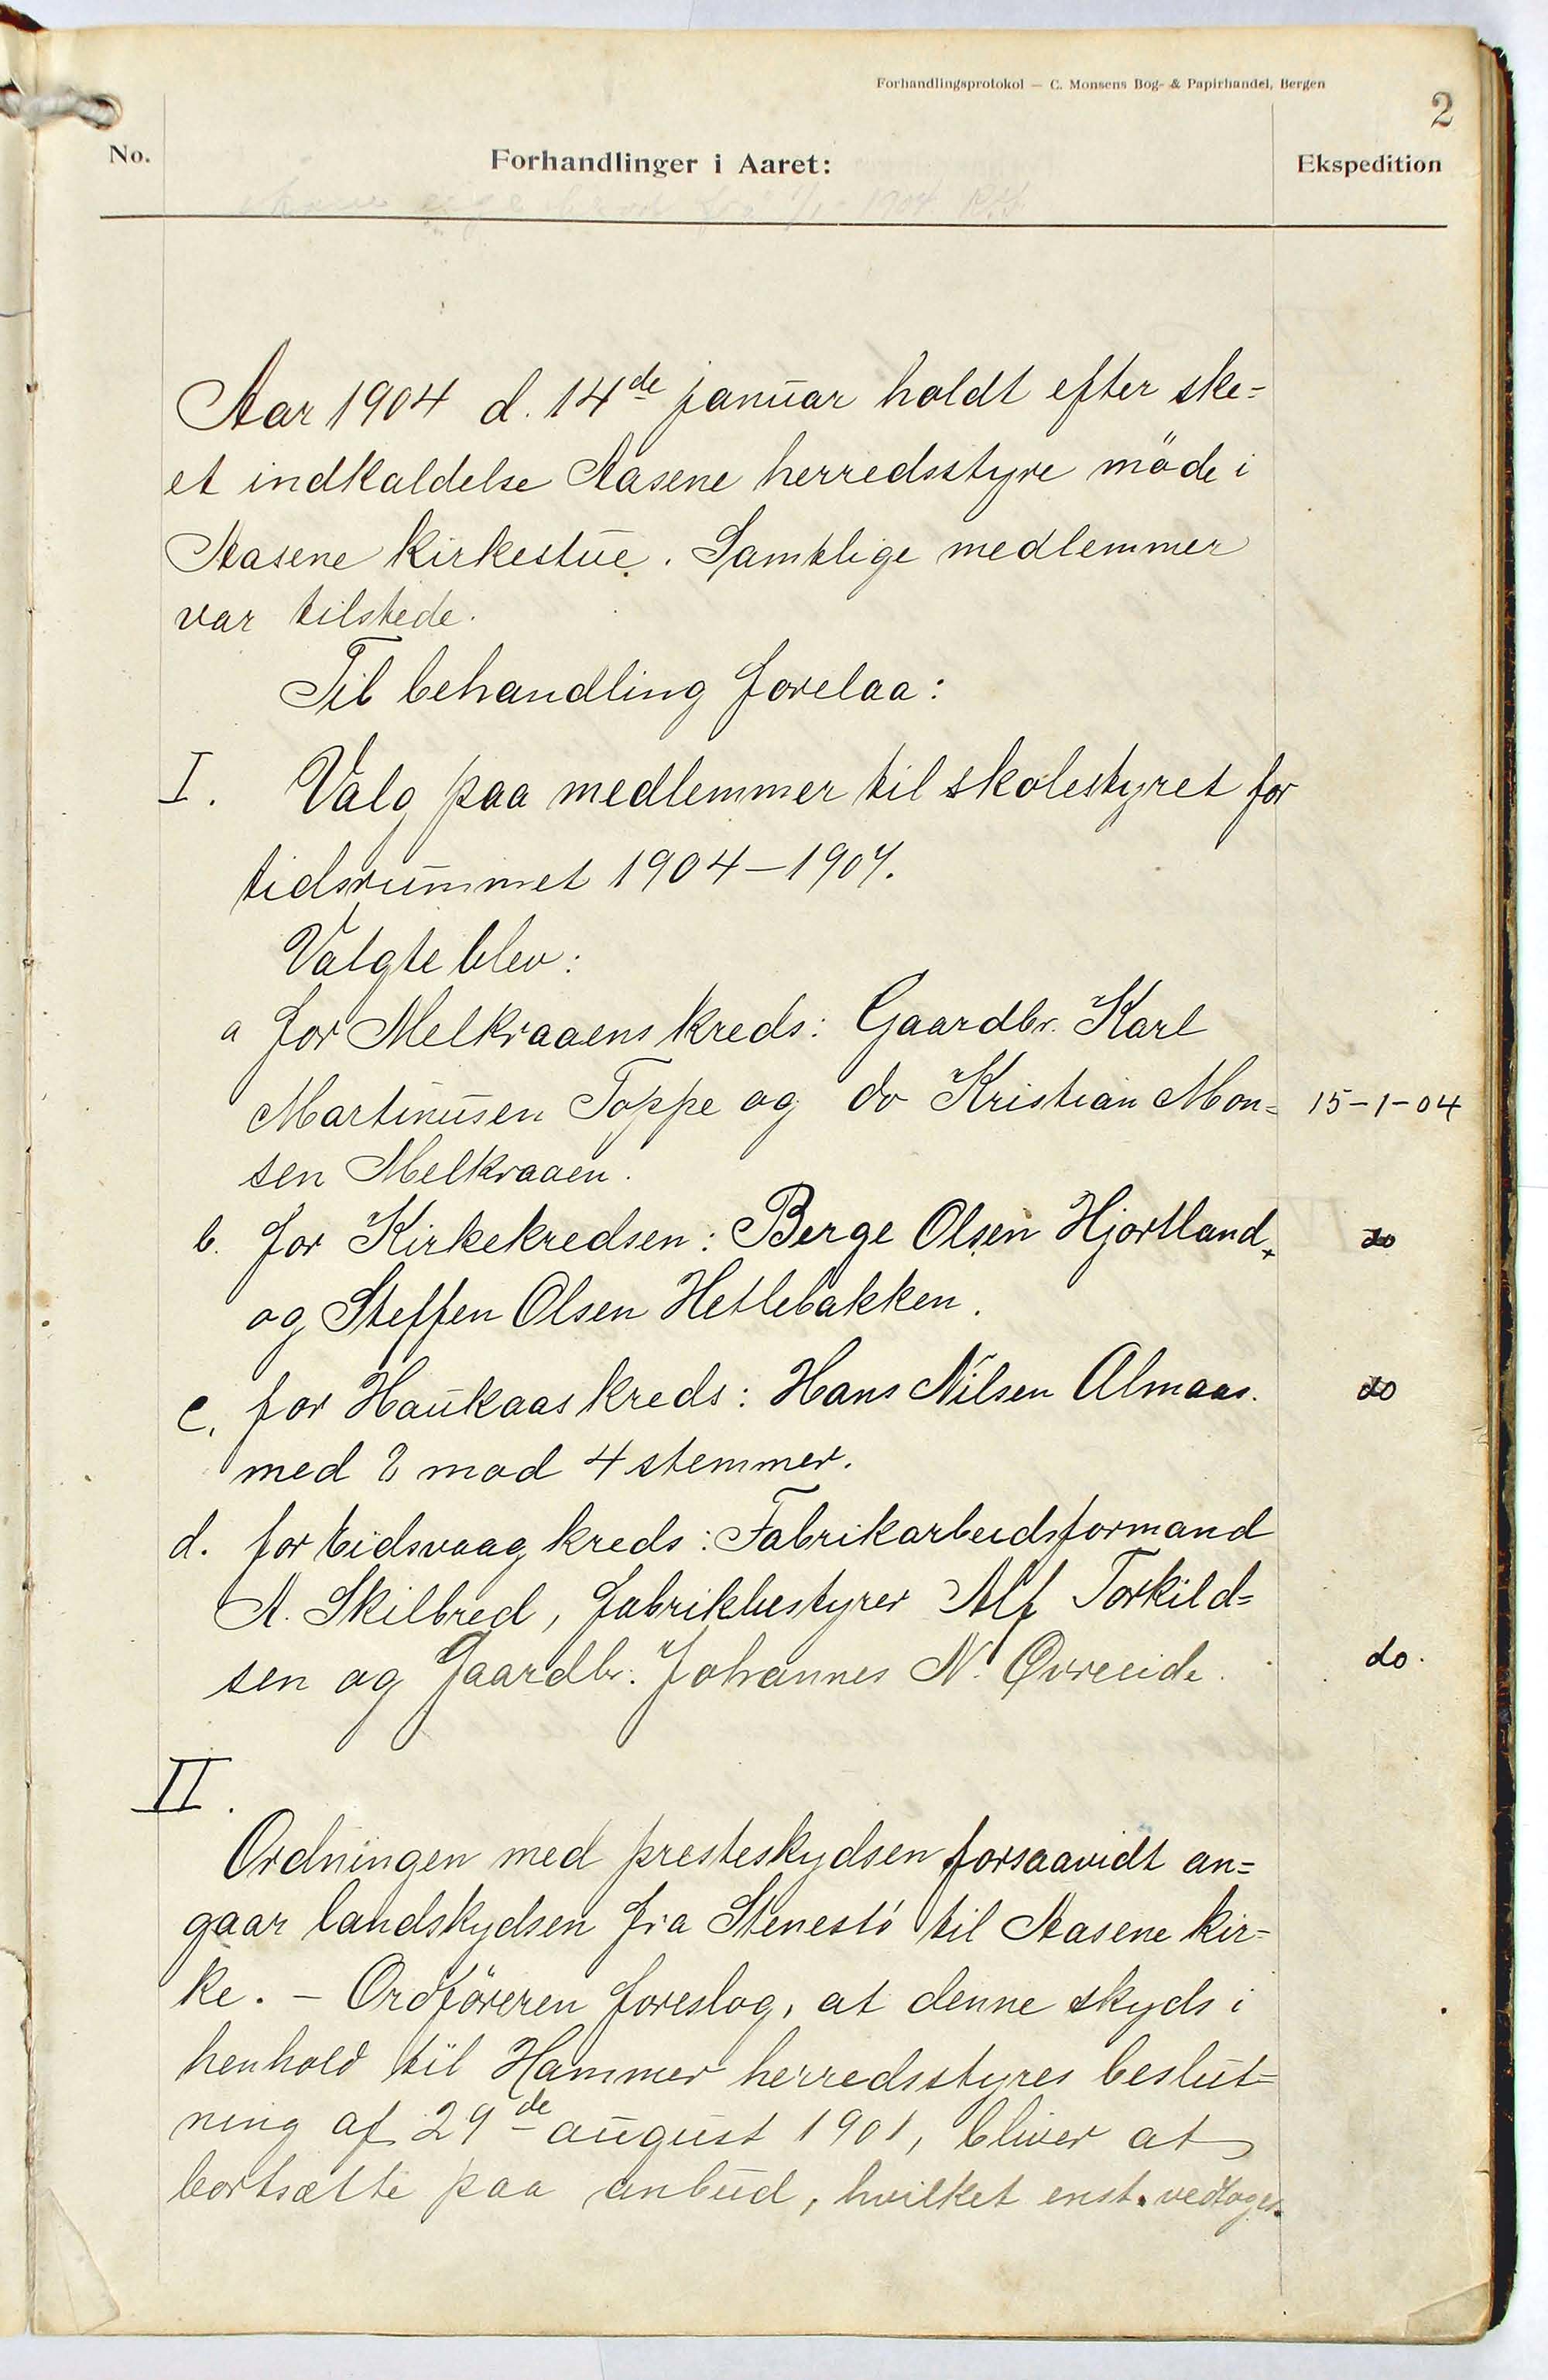 Forhandlingsprotokol — C. Monsens Bog- & Papirhandel, Bergen
2
No.
Forhandlinger i Aaret:
Ekspedition
Aar 1904 d. 14de januar holdt efter ske=
et indkaldelse Aasene herredsstyre möde i
Aasene kirkestue. Samtlige medlemmer
var tilstede.
Til behandling forelaa:
I. Valg paa medlemmer til skolestyret for
tidsrummet 1904-1907.
Valgte blev:
a for Melkraaens kreds: Gaardbr. Karl
Martinusen Toppe og do Kristian Mon= 15-1-04
sen Melkraaen.
b. for Kirkekredsen: Berge Olsen Hjortland, do
og Steffen Olsen Hetlebakken.
c. for Haukaas kreds: Hans Nilsen Almaas. do
med 8 mod 4 stemmer.
d. for Eidsvaag kreds: Fabrikarbeidsformand
A. Skilbred, fabrikbestyrer Alf Torkild=
sen og Gaardbr. Johannes N. Øvreeide. do.
II.
Ordningen med presteskydsen forsaavidt an=
gaar landskydsen fra Stenestö til Aasene kir=
ke. - Ordföreren foreslog, at denne skyds i
henhold til Hammer herredsstyres beslut=
ning af 29de august 1901, bliver at
bortsætte paa anbud, hvilket enst. vedtoges.